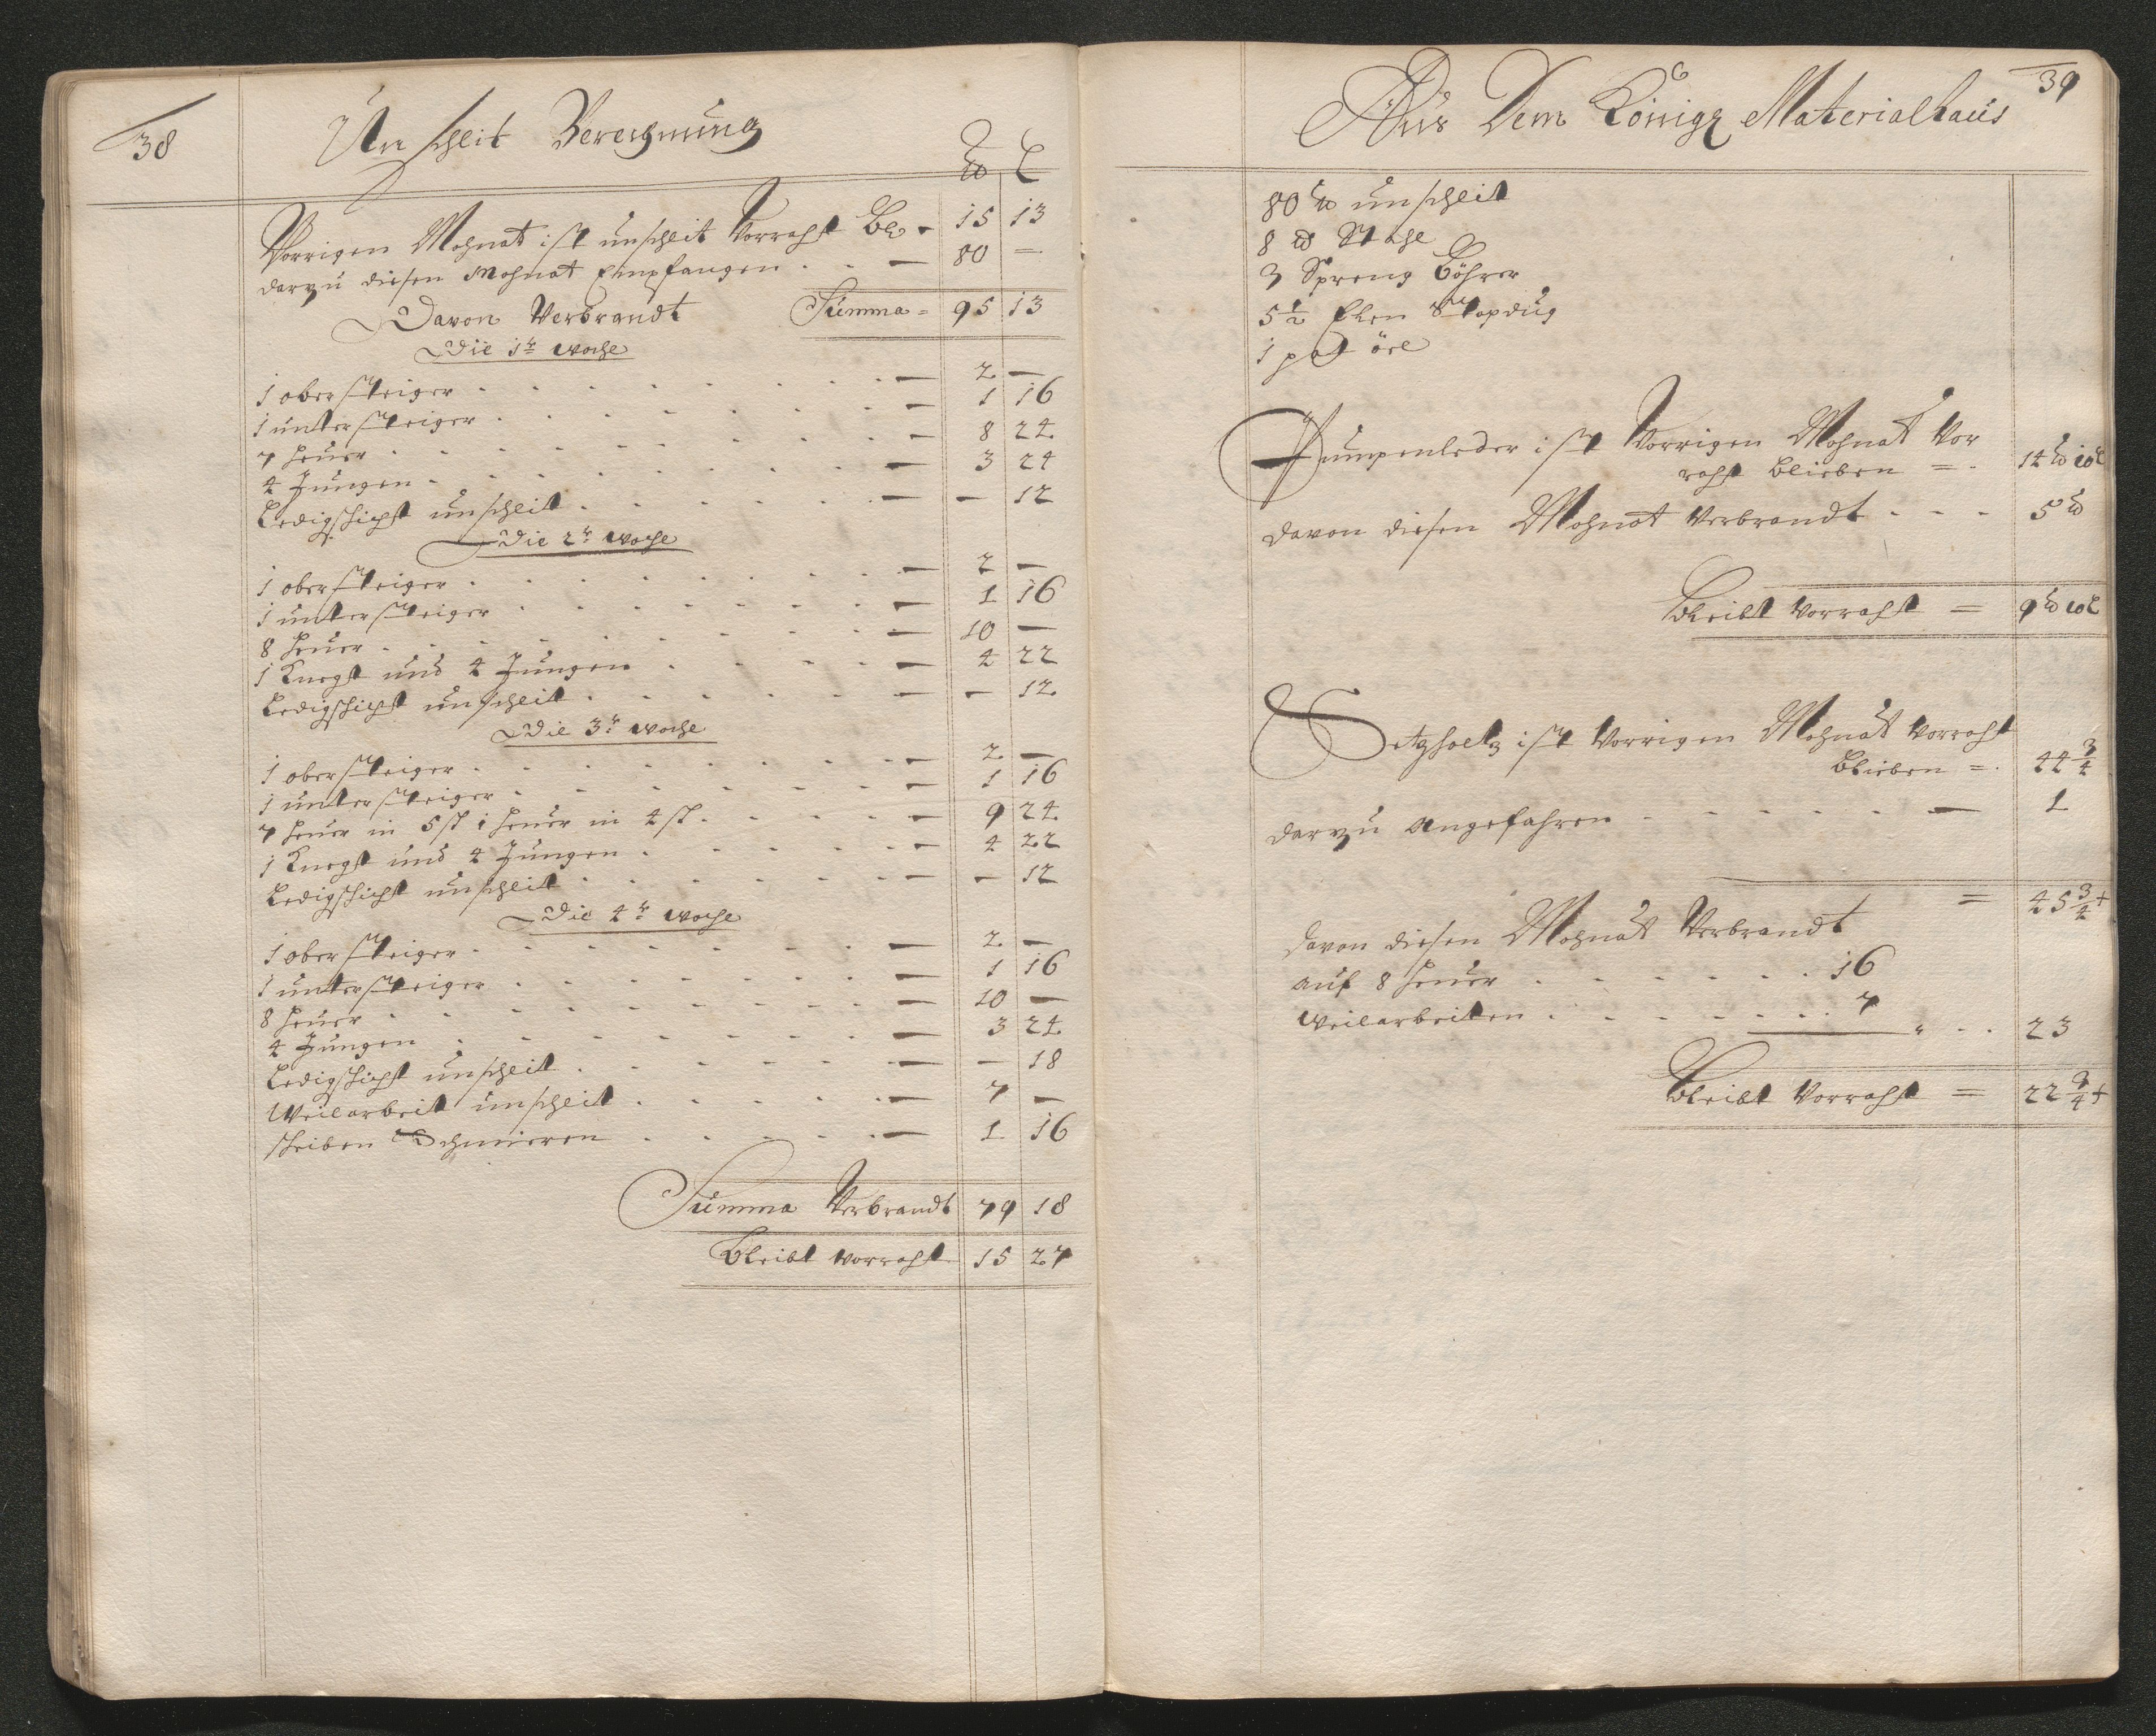 38
Unscheit Berergnung
℔ L
Vorrigen Mohnat ist unscheit Vorraht Bl. - 15 13
darzu diesen Mohnat Empfangen . . — 80 =
Davon Verbrandt Summa = 95 13
Die 1te woche
1 obersteiger . . . — 2 —
1 untersteiger . . . — 1 16
7 heuer . . . — 8 24
4 Jungen . . . — 3 24
Ledigschicht unscheit . . . — — 12
Die 2te woche
1 obersteiger . . . — 2 —
1 untersteiger . . . — 1 16
8 heuer . . . — 10 —
1 Knegt und 4 Jungen . . . — 4 22
Ledigschicht unscheit . . . — — 12
Die 3te woche
1 obersteiger . . . — 2 —
1 untersteiger . . . — 1 16
7 heuer in 5 st 1 heuer in 4 st . . . — 9 24
1 Knegt und 4 Jungen . . . — 4 22
Ledigschicht unscheit . . . — — 12
Die 4te woche
1 obersteiger . . . — 2 —
1 untersteiger . . . — 1 16
8 heuer . . . — 10 —
4 Jungen . . . — 3 24
Ledigschicht unscheit . . . — — 18
Weilarbeit unscheit . . . — 7 —
scheiben Schmieren . . . — 1 16
Summa Verbrandt 79 18
Bleibt vorraht 15 27
39
Aus Dem Königl Materialhaus
80 ℔ unscheit
8 ℔ Stahl
3 Spreng Böhrer
5 1/2 Elen Stopdug
1 pot öel
Pumpenleder ist Vorrigen Mohnat Vor
raht blieben = . 14 ℔ 10 L
davon diesen Mohnat Verbrandt - - - 5 ℔
Bleibt Vorraht = 9 ℔ 10 L
Setzholtz ist Vorrigen Mohnat Vorraht
blieben = . 44 3/4
darzu Angefahren . . . — 1
= 45 3/4 +
davon diesen Mohnat Verbrandt
auf 8 heuer . . . 16
Weilarbeiten . . . 7
23
Bleibt Vorraht = 22 3/4 +